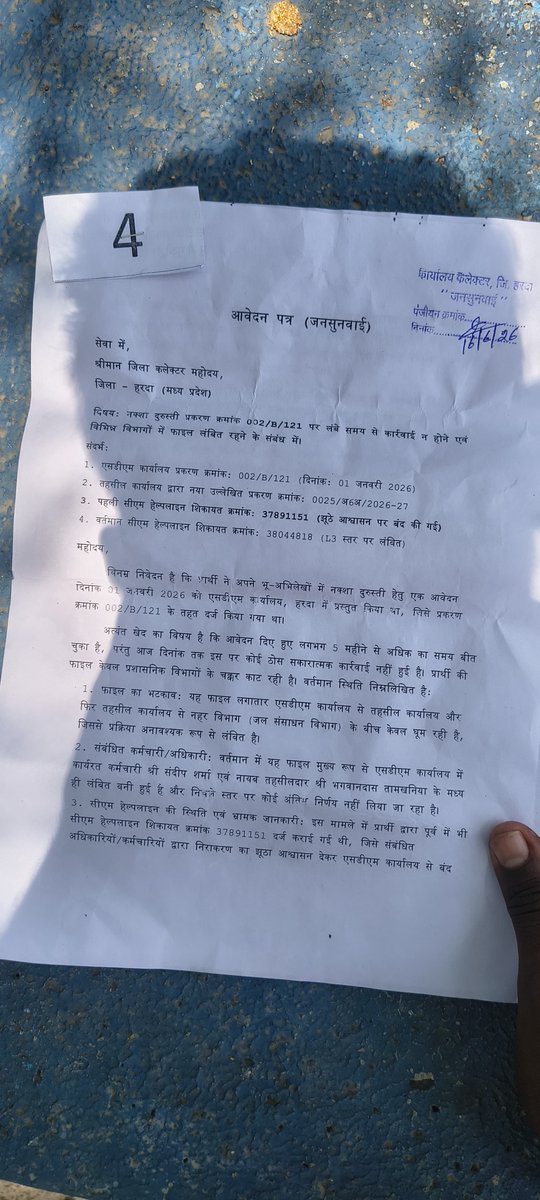 4
कार्यालय कलेक्टर, जि. हरदा
"जनसुनवाई"
पंजीयन क्रमांक..............
दिनांक.......16/6/26
आवेदन पत्र (जनसुनवाई)
सेवा में,
श्रीमान जिला कलेक्टर महोदय,
जिला - हरदा (मध्य प्रदेश)
विषय: नक्शा दुरुस्ती प्रकरण क्रमांक 002/B/121 पर लंबे समय से कार्रवाई न होने एवं
विभिन्न विभागों में फाइल लंबित रहने के संबंध में।
संदर्भ:
1. एसडीएम कार्यालय प्रकरण क्रमांक: 002/B/121 (दिनांक: 01 जनवरी 2026)
2. तहसील कार्यालय द्वारा नया उल्लेखित प्रकरण क्रमांक: 0025/अ6अ/2026-27
3. पहली सीएम हेल्पलाइन शिकायत क्रमांक: 37891151 (झूठे आश्वासन पर बंद की गई)
4. वर्तमान सीएम हेल्पलाइन शिकायत क्रमांक: 38044818 (L3 स्तर पर लंबित)
महोदय,
विनम्र निवेदन है कि प्रार्थी ने अपने भू-अभिलेखों में नक्शा दुरुस्ती हेतु एक आवेदन
दिनांक 01 जनवरी 2026 को एसडीएम कार्यालय, हरदा में प्रस्तुत किया था, जिसे प्रकरण
क्रमांक 002/B/121 के तहत दर्ज किया गया था।
अत्यंत खेद का विषय है कि आवेदन दिए हुए लगभग 5 महीने से अधिक का समय बीत
चुका है, परंतु आज दिनांक तक इस पर कोई ठोस सकारात्मक कार्रवाई नहीं हुई है। प्रार्थी की
फाइल केवल प्रशासनिक विभागों के चक्कर काट रही है। वर्तमान स्थिति निम्नलिखित है:
1. फाइल का भटकाव: यह फाइल लगातार एसडीएम कार्यालय से तहसील कार्यालय और
फिर तहसील कार्यालय से नहर विभाग (जल संसाधन विभाग) के बीच केवल घूम रही है,
जिससे प्रक्रिया अनावश्यक रूप से लंबित है।
2. संबंधित कर्मचारी/अधिकारी: वर्तमान में यह फाइल मुख्य रूप से एसडीएम कार्यालय में
कार्यरत कर्मचारी श्री संदीप शर्मा एवं नायब तहसीलदार श्री भगवानदास तामखनिया के मध्य
ही लंबित बनी हुई है और निचले स्तर पर कोई अंतिम निर्णय नहीं लिया जा रहा है।
3. सीएम हेल्पलाइन की स्थिति एवं भ्रामक जानकारी: इस मामले में प्रार्थी द्वारा पूर्व में भी
सीएम हेल्पलाइन शिकायत क्रमांक 37891151 दर्ज कराई गई थी, जिसे संबंधित
अधिकारियों/कर्मचारियों द्वारा निराकरण का झूठा आश्वासन देकर एसडीएम कार्यालय से बंद